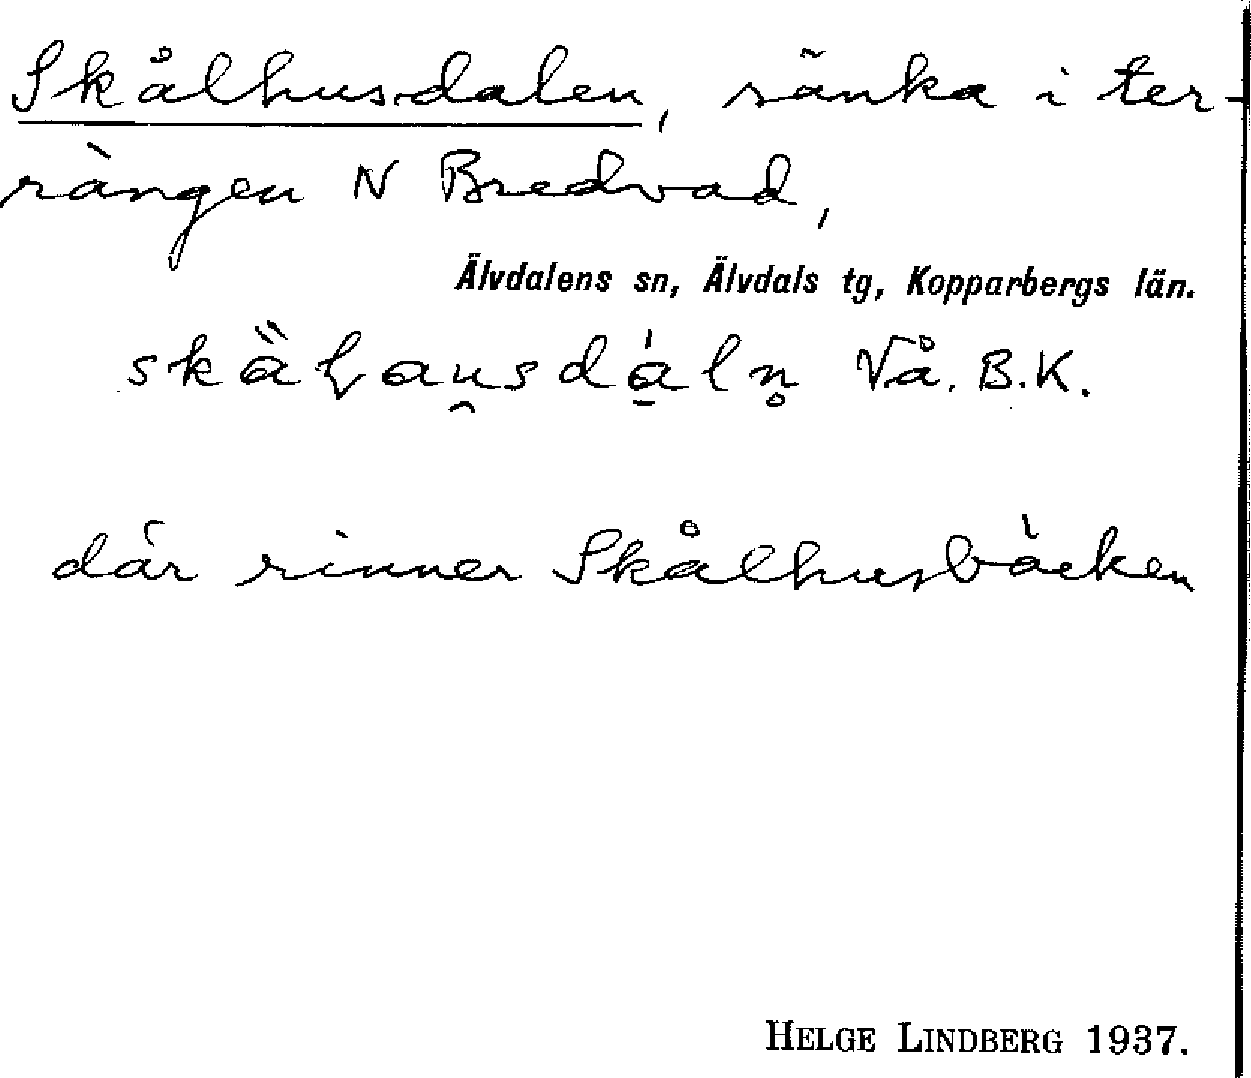 Skålhusdalen, sänka i ter-
rängen N Bredvad,
Älvdalens sn, Älvdals tg, Kopparbergs län.
Vå. B.K.
där rinner Skålhusbäcken
HELGE LINDBERG 1937.